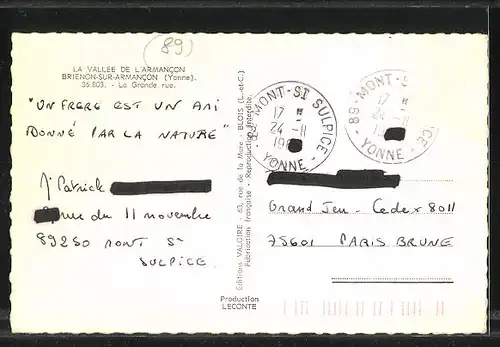 (89)
LA VALLÉE DE L'ARMANÇON
BRIENON-SUR-ARMANÇON (Yonne).
36.803. - La Grande rue.
"UN FRERE EST UN AMI
DONNÉ PAR LA NATURE"
Mr Patrick
rue du 11 novembre
89250 MONT St
SULPICE.
Editions VALOIRE - 63, rue de la Mare - BLOIS (L.-et-C.)
Fabrication française - Reproduction interdite.
Production
LECONTE
89 - MONT-ST SULPICE -
17 H
24 -11
19
YONNE
89 - MONT-S
PICE -
17 H
24 -11
YONNE
Grand Jeu - Cedex 8011
75601 PARIS BRUNE